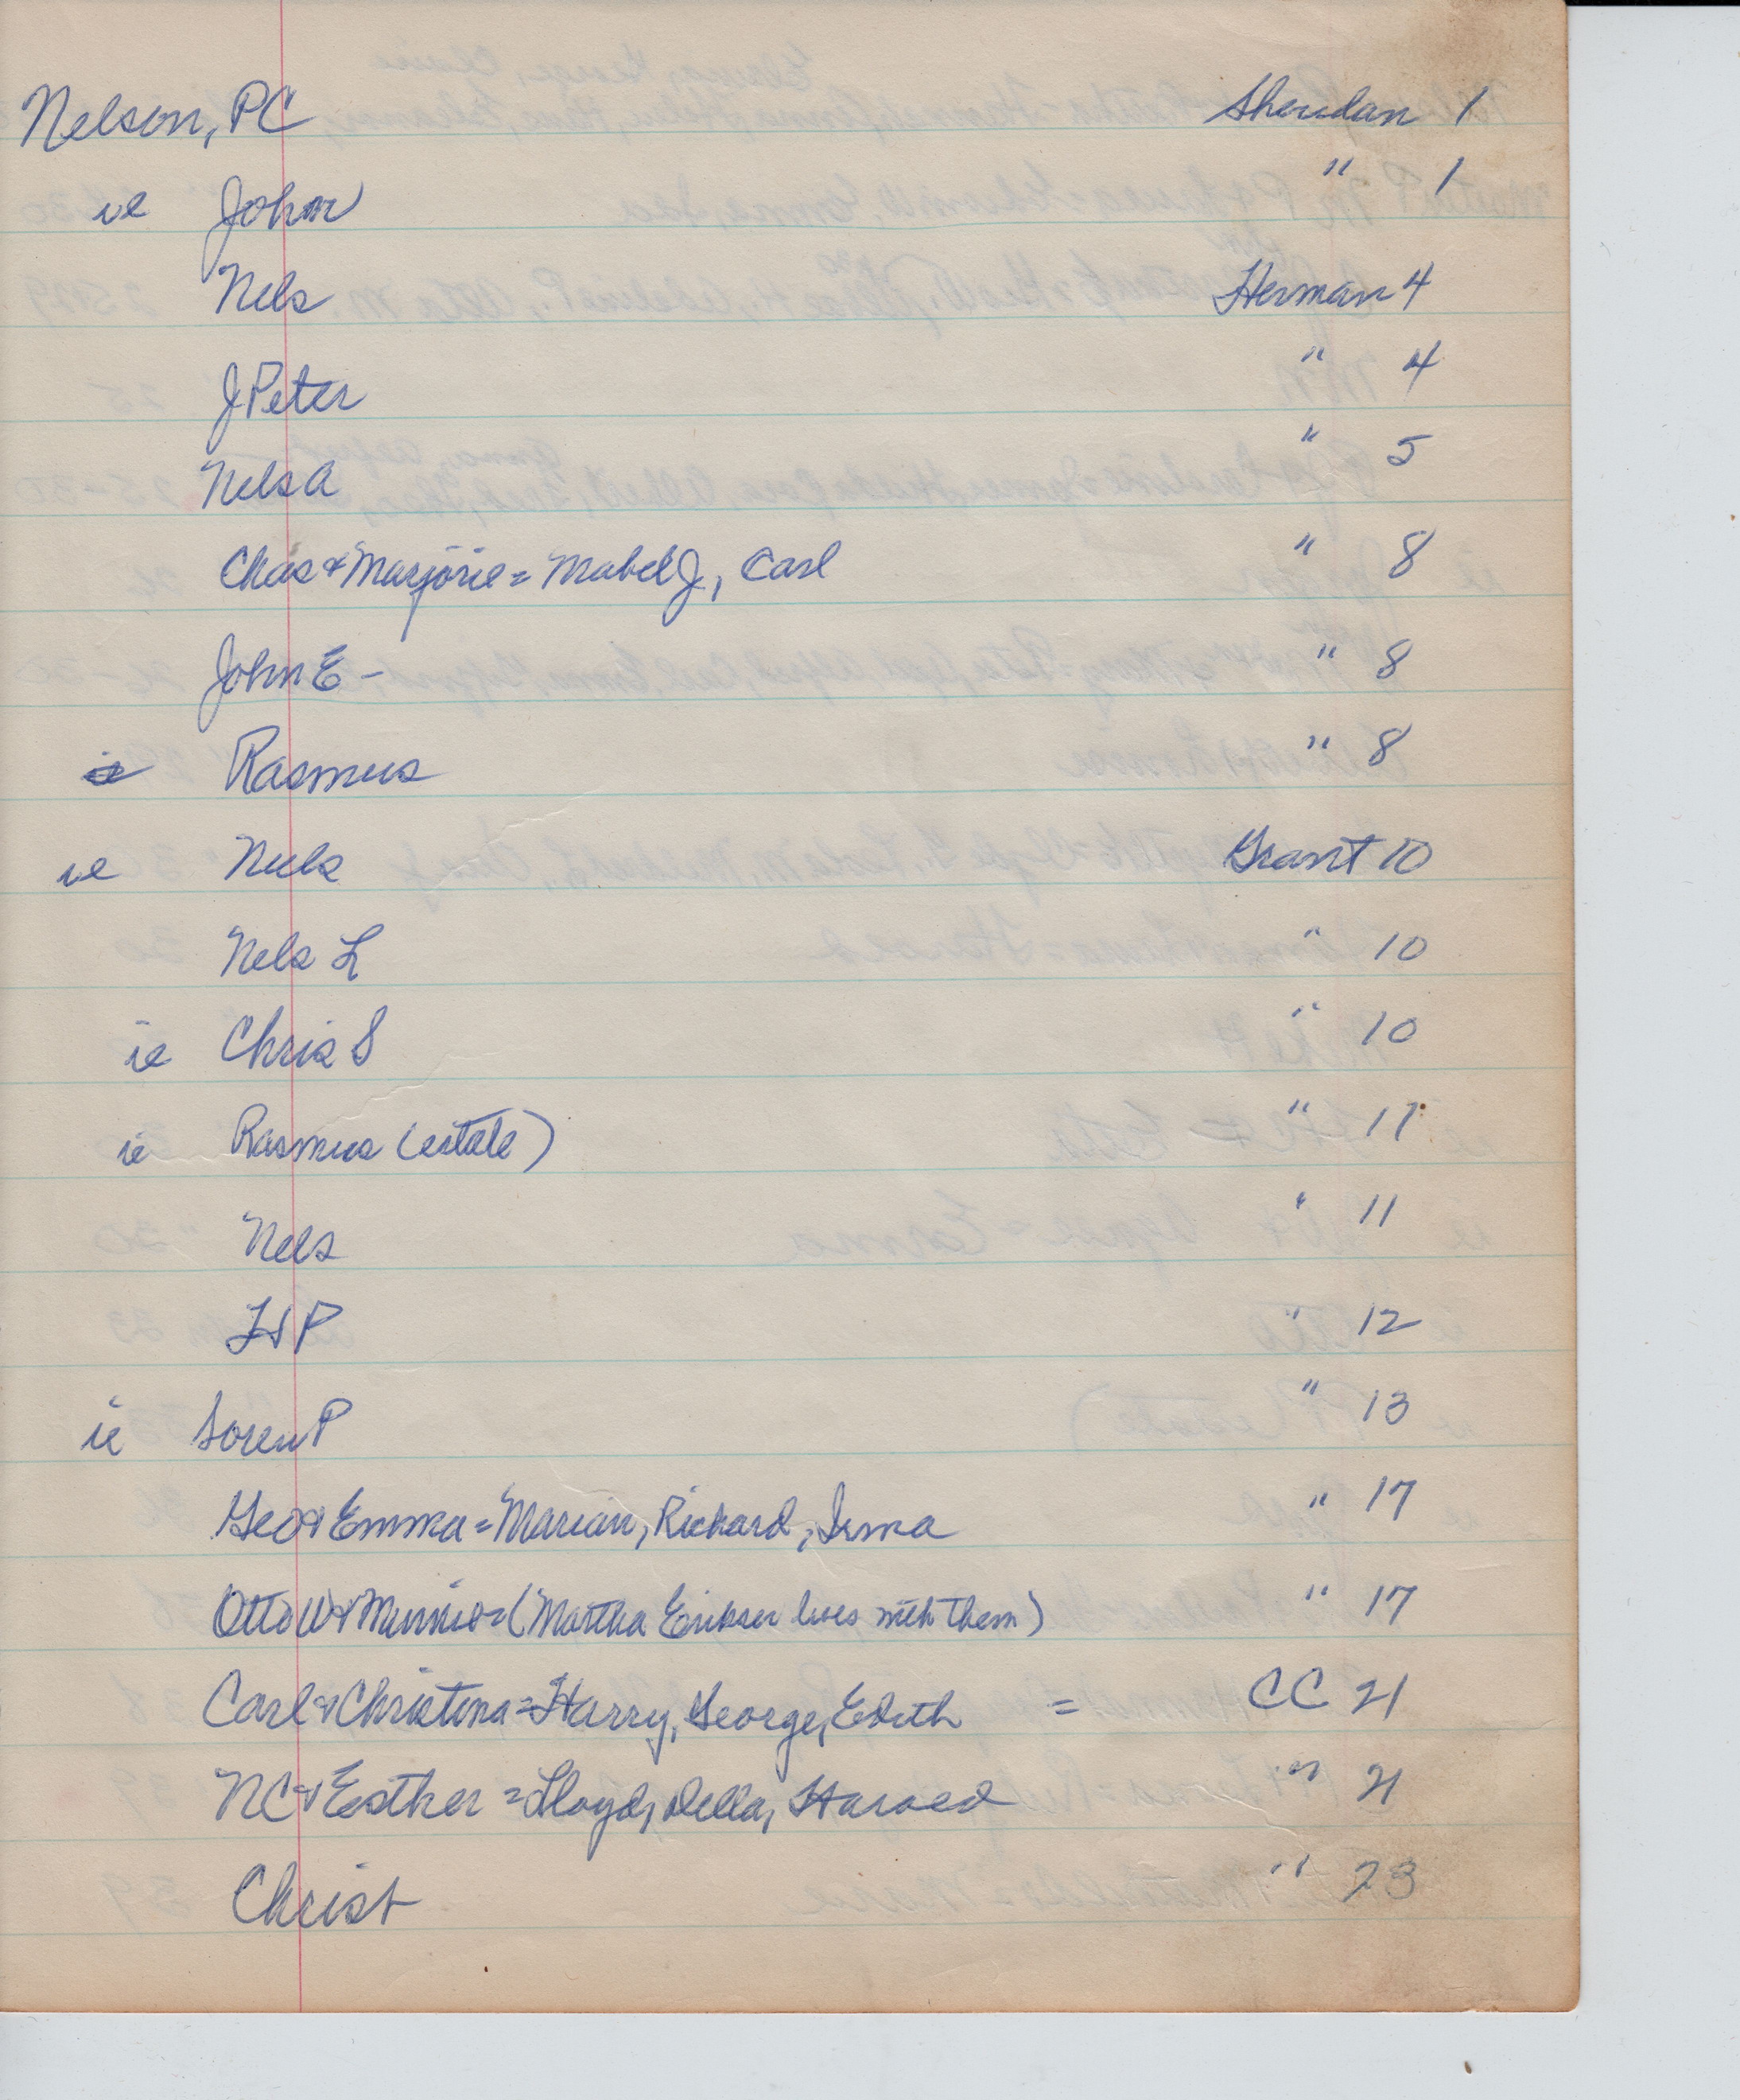 Nelson, PC Sheridan 1
ie John " 1
Nels Herman 4
J Peter " 4
Nels A " 5
Chas & Marjorie = Mabel J, Carl " 8
John E - " 8
Rasmus " 8
ie Niels Grant 10
Nels L " 10
ie Chris S " 10
ie Rasmus (estate) " 11
Nels " 11
P " 12
ie Soren P " 13
Geo & Emma = Marian, Richard, Irma " 17
Otto W & Minnie = (Martha Erikson lives with them) " 17
Carl & Christina = Harry, George, Edith = CC 21
NC & Esther = Lloyd, Della, Harold " 21
Christ " 23